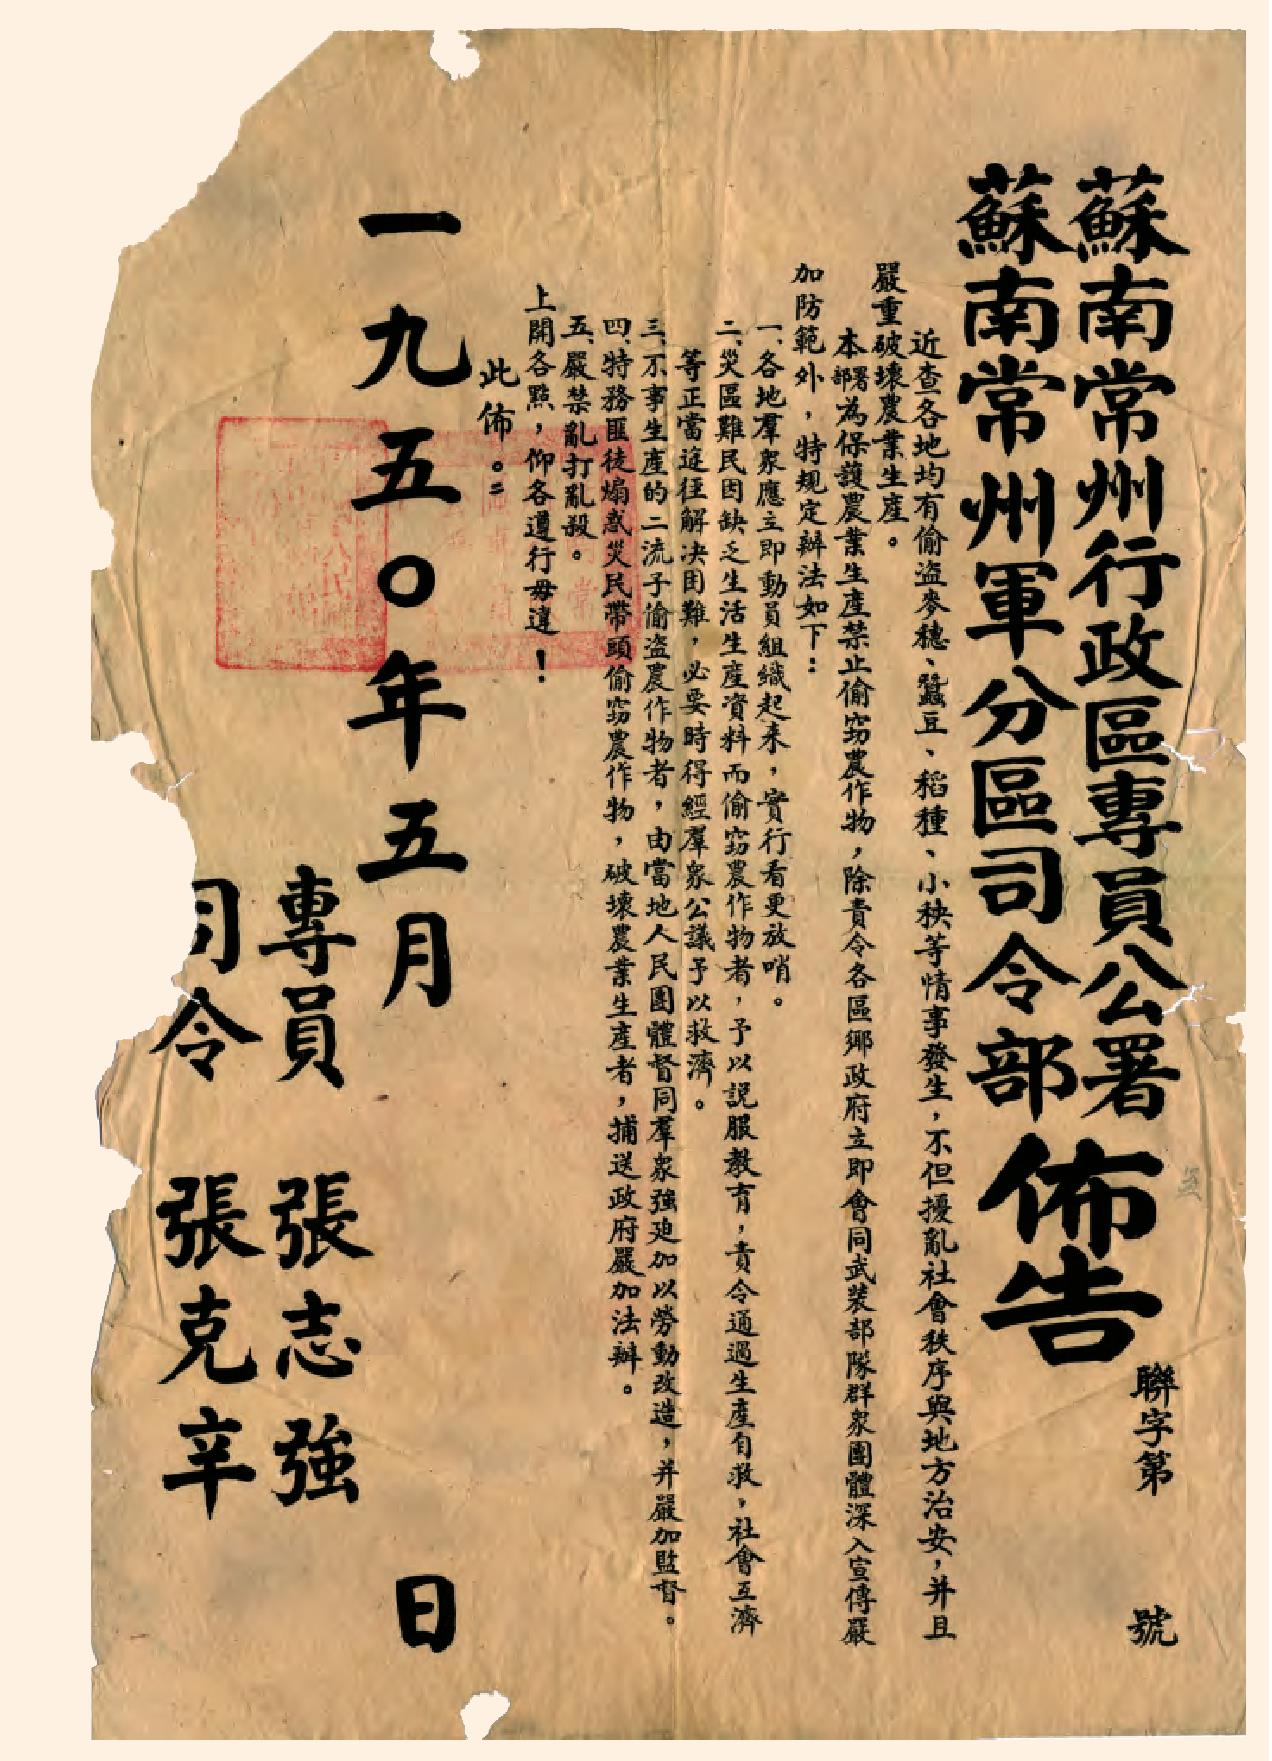 蘇南常州行政區專員公署
蘇南常州軍分區司令部
佈告
聯字第 號
近查各地均有偷盜麥穗、蠶豆、稻種、小秧等情事發生，不但擾亂社會秩序與地方治安，并且
嚴重破壞農業生產。
本部署為保護農業生產禁止偷窃農作物，除責令各區鄉政府立即會同武装部隊群眾團體深入宣傳嚴
加防範外，特規定辦法如下：
一、各地羣眾應立即動員組織起來，實行看更放哨。
二、災區難民因缺乏生活生產資料而偷窃農作物者，予以説服教育，責令通過生產自救，社會互濟
等正當途徑解决困難，必要時得經羣眾公議予以救濟。
三、不事生產的二流子偷盜農作物者，由當地人民團體督同羣眾強廹加以勞動改造，并嚴加監督。
四、特務匪徒煽惑災民帶頭偷窃農作物，破壞農業生產者，捕送政府嚴加法辦。
五、嚴禁亂打亂殺。
上開各點，仰各遵行毋違！
此佈。
一九五〇年五月 日
專員 張志強
司令 張克辛